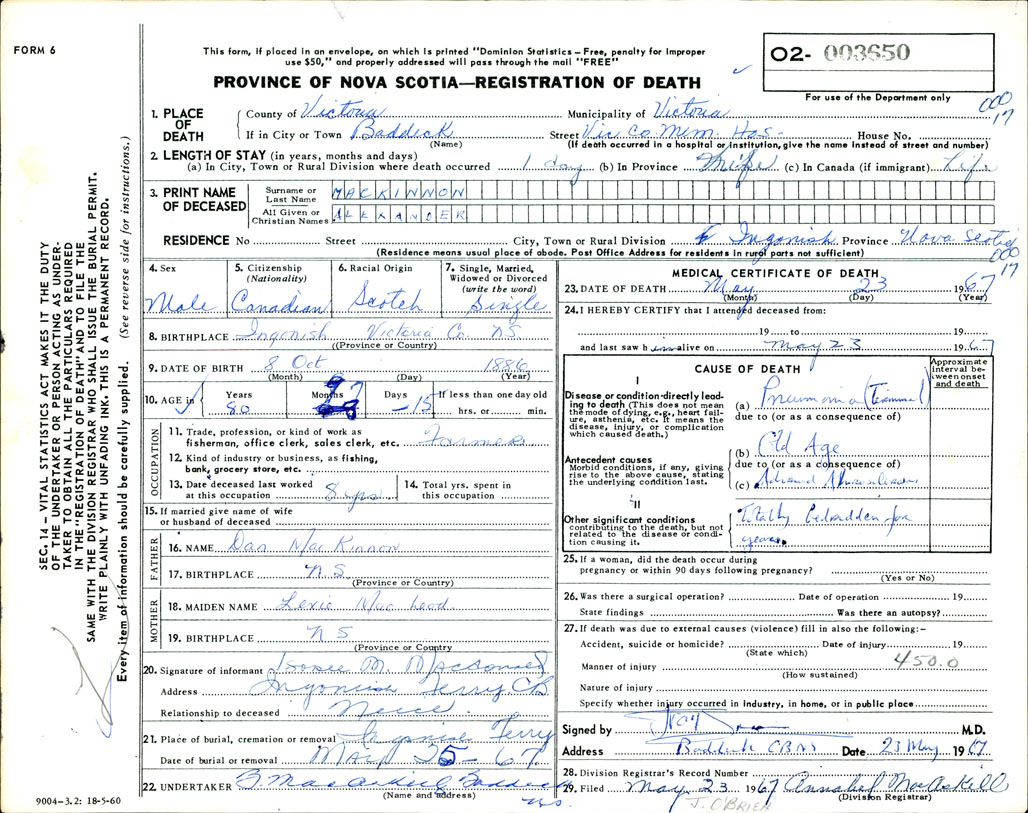 FORM 6
This form, if placed in an envelope, on which is printed "Dominion Statistics – Free, penalty for improper
use $50," and properly addressed will pass through the mail "FREE"
O2- 003650
PROVINCE OF NOVA SCOTIA—REGISTRATION OF DEATH
For use of the Department only
000
17
1. PLACE OF DEATH
County of Victoria Municipality of Victoria
If in City or Town Baddeck Street Vic. Co. Mem. Hos- House No.
(Name) (If death occurred in a hospital or institution, give the name instead of street and number)
2. LENGTH OF STAY (in years, months and days)
(a) In City, Town or Rural Division where death occurred 1 day (b) In Province Life (c) In Canada (if immigrant) Life
3. PRINT NAME OF DECEASED
Surname or Last Name MACKINNON
All Given or Christian Names ALEXANDER
RESIDENCE No Street City, Town or Rural Division Ingonish Province Nova Scotia
(Residence means usual place of abode. Post Office Address for residents in rural parts not sufficient)
000
17
4. Sex Male
5. Citizenship (Nationality) Canadian
6. Racial Origin Scotch
7. Single, Married, Widowed or Divorced (write the word) Single
8. BIRTHPLACE Ingonish Victoria Co. NS
(Province or Country)
9. DATE OF BIRTH 8 Oct 1886
(Month) (Day) (Year)
10. AGE in Years 80 Months 7 Days 15 If less than one day old
hrs. or min.
OCCUPATION
11. Trade, profession, or kind of work as
fisherman, office clerk, sales clerk, etc. Farmer
12. Kind of industry or business, as fishing,
bank, grocery store, etc.
13. Date deceased last worked
at this occupation 8 yrs
14. Total yrs. spent in
this occupation
15. If married give name of wife
or husband of deceased
FATHER
16. NAME Dan MacKinnon
17. BIRTHPLACE N S
(Province or Country)
MOTHER
18. MAIDEN NAME Lexie MacLeod
19. BIRTHPLACE N S
(Province or Country)
20. Signature of informant M. MacDonald
Address Ingonish Ferry CB
Relationship to deceased Neice
21. Place of burial, cremation or removal Ingonish Ferry
Date of burial or removal May 25 - 67
22. UNDERTAKER Baddeck
(Name and address) NS.
MEDICAL CERTIFICATE OF DEATH
23. DATE OF DEATH May 23 1967
(Month) (Day) (Year)
24. I HEREBY CERTIFY that I attended deceased from:
19 to 19
and last saw him alive on May 23 1967
CAUSE OF DEATH
Approximate interval between onset and death
I
Disease or condition directly lead-
ing to death (This does not mean
the mode of dying, e.g., heart fail-
ure, asthenia, etc. It means the
disease, injury, or complication
which caused death.)
(a) Pneumonia (Terminal)
due to (or as a consequence of)
Antecedent causes
Morbid conditions, if any, giving
rise to the above cause, stating
the underlying condition last.
(b) Old Age
due to (or as a consequence of)
(c) Advanced
II
Other significant conditions
contributing to the death, but not
related to the disease or condi-
tion causing it.
Totally bedridden for
years.
25. If a woman, did the death occur during
pregnancy or within 90 days following pregnancy?
(Yes or No)
26. Was there a surgical operation? Date of operation 19
State findings Was there an autopsy?
27. If death was due to external causes (violence) fill in also the following:–
Accident, suicide or homicide? Date of injury 19
(State which)
450.0
Manner of injury
(How sustained)
Nature of injury
Specify whether injury occurred in industry, in home, or in public place
Signed by M.D.
Address Baddeck CB NS Date 23 May 1967
28. Division Registrar's Record Number
29. Filed May 23 1967 Annabel MacAskill
(Division Registrar)
J. O'BRIEN
9004–3.2: 18-5-60
SEC. 14 – VITAL STATISTICS ACT MAKES IT THE DUTY
OF THE UNDERTAKER OR PERSON ACTING AS UNDER-
TAKER TO OBTAIN ALL THE PARTICULARS REQUIRED
IN THE "REGISTRATION OF DEATH" AND TO FILE THE
SAME WITH THE DIVISION REGISTRAR WHO SHALL ISSUE THE BURIAL PERMIT.
WRITE PLAINLY WITH UNFADING INK. THIS IS A PERMANENT RECORD.
Every item of information should be carefully supplied. (See reverse side for instructions.)